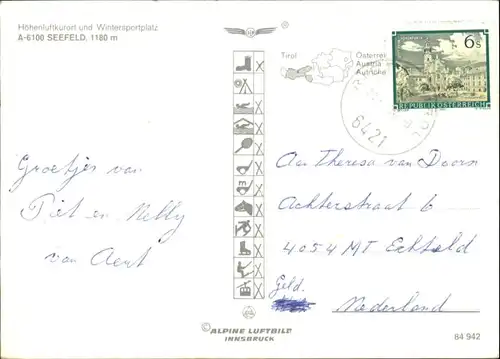 Höhenluftkurort und Wintersportplatz
A-6100 SEEFELD, 1180 m
Tirol
Österrei
Austria
Autriche
6 S
REPUBLIK ÖSTERREICH
6421
Groetjes van
Piet en Nelly
van Aent
Aan Theresa van Doorn
Achterstraat 6
4054 MT Echteld
Geld.
Nederland
© ALPINE LUFTBILD
INNSBRUCK
84 942